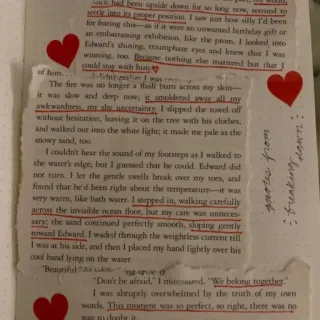 such had been upside down for so long now, seemed to
settle into its proper position. I saw just how silly I'd been
for fearing this—as if it were an unwanted birthday gift or
an embarrassing exhibition, like the prom. I looked into
Edward's shining, triumphant eyes and knew that I was
winning, too. Because nothing else mattered but that I
could stay with him.
of him.
The fire was no longer a flash burn across my skin—
it was slow and deep now; it smoldered away all my
awkwardness, my shy uncertainty. I slipped the towel off
without hesitation, leaving it on the tree with his clothes,
and walked out into the white light; it made me pale as the
snowy sand, too.
I couldn't hear the sound of my footsteps as I walked to
the water's edge, but I guessed that he could. Edward did
not turn. I let the gentle swells break over my toes, and
found that he'd been right about the temperature—it was
very warm, like bath water. I stepped in, walking carefully
across the invisible ocean floor, but my care was unneces-
sary; the sand continued perfectly smooth, sloping gently
toward Edward. I waded through the weightless current till
I was at his side, and then I placed my hand lightly over his
cool hand lying on the water.
"Beautiful,"
"Don't be afraid," I murmured. "We belong together."
I was abruptly overwhelmed by the truth of my own
words. This moment was so perfect, so right, there was no
way to doubt it.
quotes from
: breaking dawn :